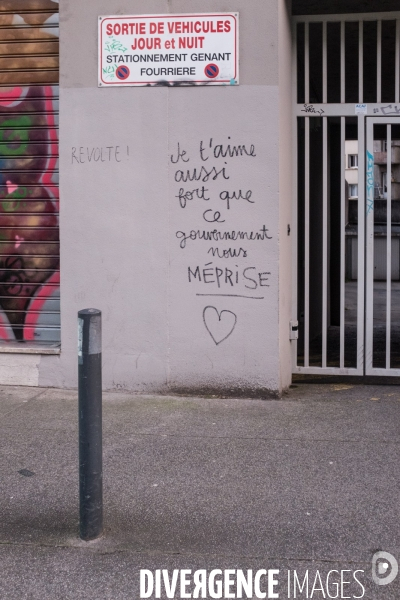 SORTIE DE VEHICULES
JOUR et NUIT
STATIONNEMENT GENANT
FOURRIERE
REVOLTE !
Je t'aime
aussi
fort que
ce
gouvernement
nous
MÉPRISE
DIVERGENCE IMAGES